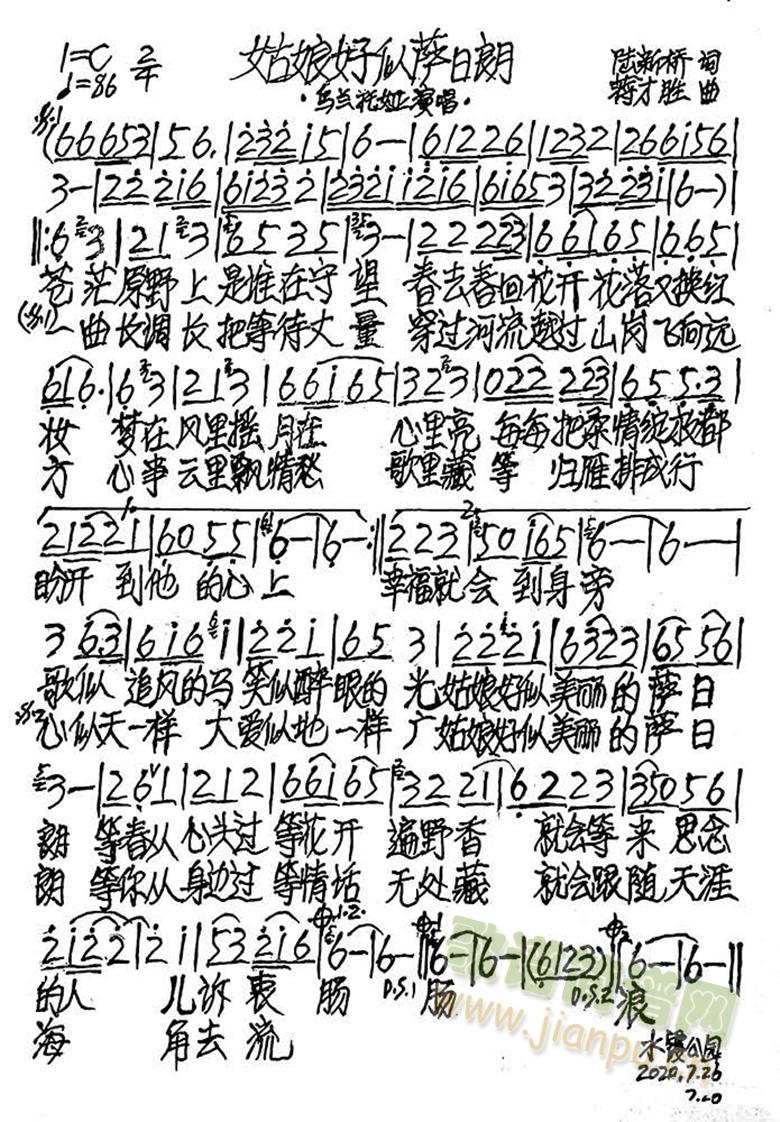 1=C 2/4
♩=86
姑娘好似萨日朗
·乌兰托娅演唱·
陆新桥 词
蒋才胜 曲
(66653|56.|23215|6-|612226|1232|266156|
3-|222216|61232|2321 1216|61653|322231|6-)|
‖:63|213|6535|3-|22223|66165|665|
苍茫原野上是谁在守望 春去春回花开花落又换红
一曲长调长把等待丈量 穿过河流越过山岗飞向远
616.|63|213|66165|323|022 223|6 5 5.3|
妆 梦在风里摇月在 心里亮 每每把柔情绽放都
方 心事云里飘情愁 歌里藏 等 归雁排成行
21221|6055|6-|6-:‖223|50165|6-|6--|
盼开 到他的心上 幸福就会到身旁
3 63|6161|221|65 3|2221|6323|6556|
歌似追风的马笑似醉眼的光姑娘好似美丽的萨日
心似天一样 大爱似地一样广姑娘好似美丽的萨日
3-|261|212|66165|32 21|6223|35056|
朗 等春从心头过等花开 遍野香 就会等来思念
朗 等你从身边过等情话 无处藏 就会跟随天涯
2122|21|53216|6-|6-‖6-|6-|(6123)‖6-|6-‖
的人 儿诉衷肠 D.S.1 肠 D.S.2 浪
海 角去流
歌谱简谱网
www.jianpu.cn
水霞公园
2020.7.26
7.20